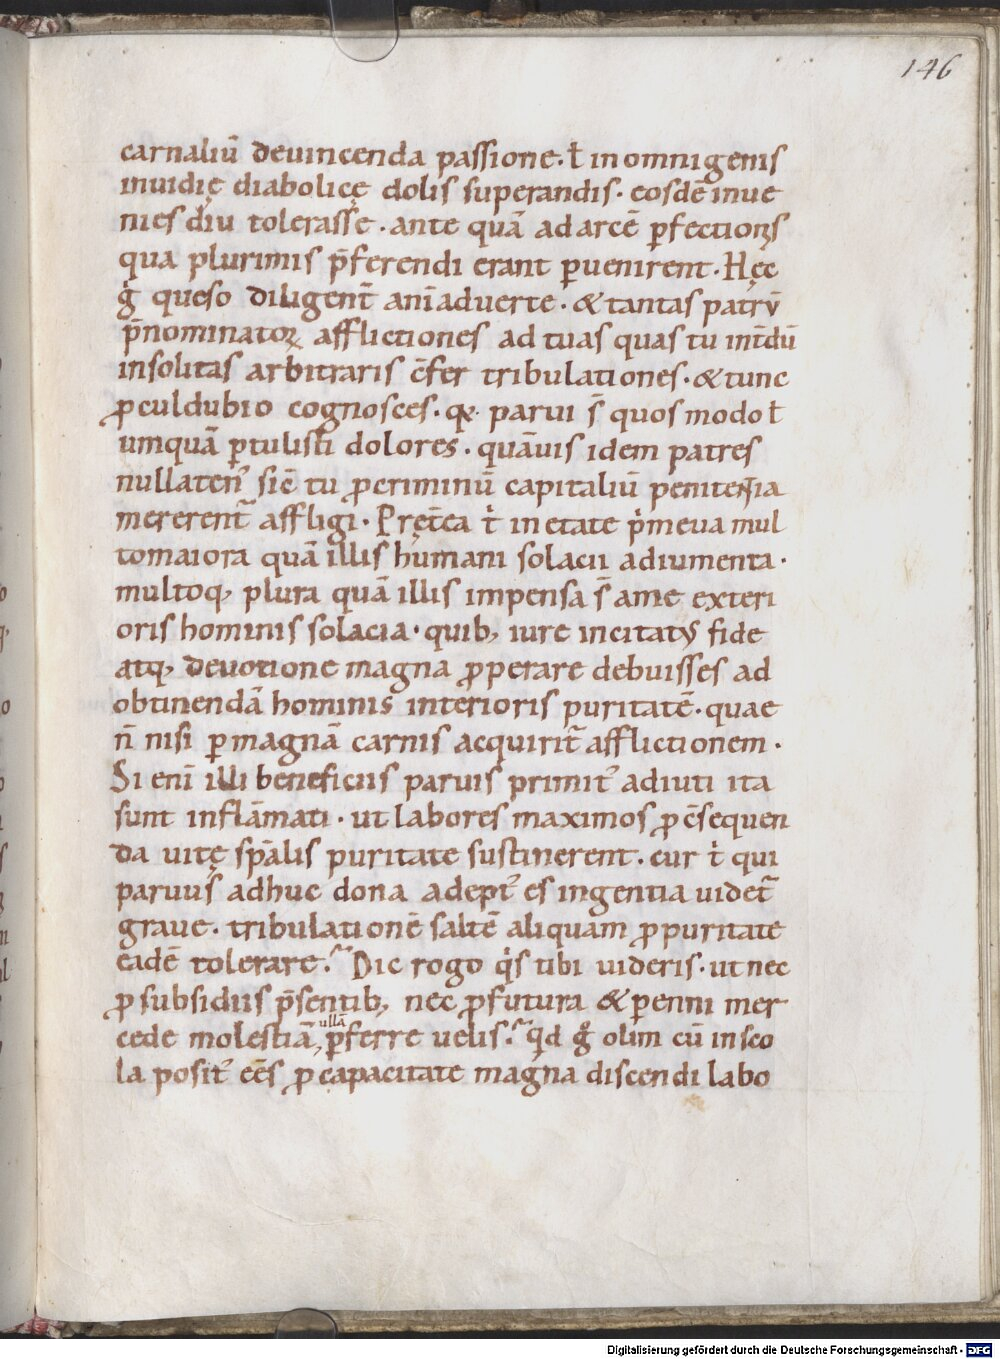 146
carnaliū deuincenda passione. ł in omnigenis
inuidię diabolicę dolis superandis. eosdē inue
nies diu tolerasse. ante quā ad arcē ꝑfectionis
qua plurimis p̄ferendi erant ꝑuenirent. Hęc
g̊ queso diligent̄ anīaduerte. & tantas patrū
p̄nominatoꝝ afflictiones ad tuas quas tu int̄dū
insolitas arbitraris c̄fer tribulationes. & tunc
ꝓculdubio cognosces. qꝫ parui s̄ quos modo ł
umquā ꝑtulisti dolores. quāuis idem patres
nullaten᾽ sic̄ tu ꝓ criminū capitaliū penitentia
mererent᷑ affligi. Pręt̄ea t᷒i in etate p᷒imeua mul
to maiora quā illis humani solacii adiumenta.
multoqꝫ plura quā illis impensa s̄ a me exteri
oris hominis solacia. quibꝫ iure incitatus fide
atqꝫ deuotione magna ꝓperare debuisses ad
obtinendā hominis interioris puritatē. quae
n̄ nisi ꝑ magnā carnis acquirit᷑ afflictionem.
Si enī illi beneficiis paruis primit᾽ adiuti ita
sunt inflāmati. ut labores maximos ꝓ c̄sequen
da uitę sp̄alis puritate sustinerent. cur t᷒i qui
paruus adhuc dona adept᾽ es ingentia uidet᷑
graue. tribulationē saltē aliquam ꝓ puritate
eadē tolerare? Dic rogo q᷒is tibi uideris. ut nec
ꝓ subsidiis p̄sentibꝫ, nec ꝓ futura & ꝑenni mer
ullā
cede molestiā, ꝑferre uelis? qd̄ g̊ olim cū in sco
la posit᾽ eēs ꝓ capacitate magna discendi labo
Digitalisierung gefördert durch die Deutsche Forschungsgemeinschaft - DFG